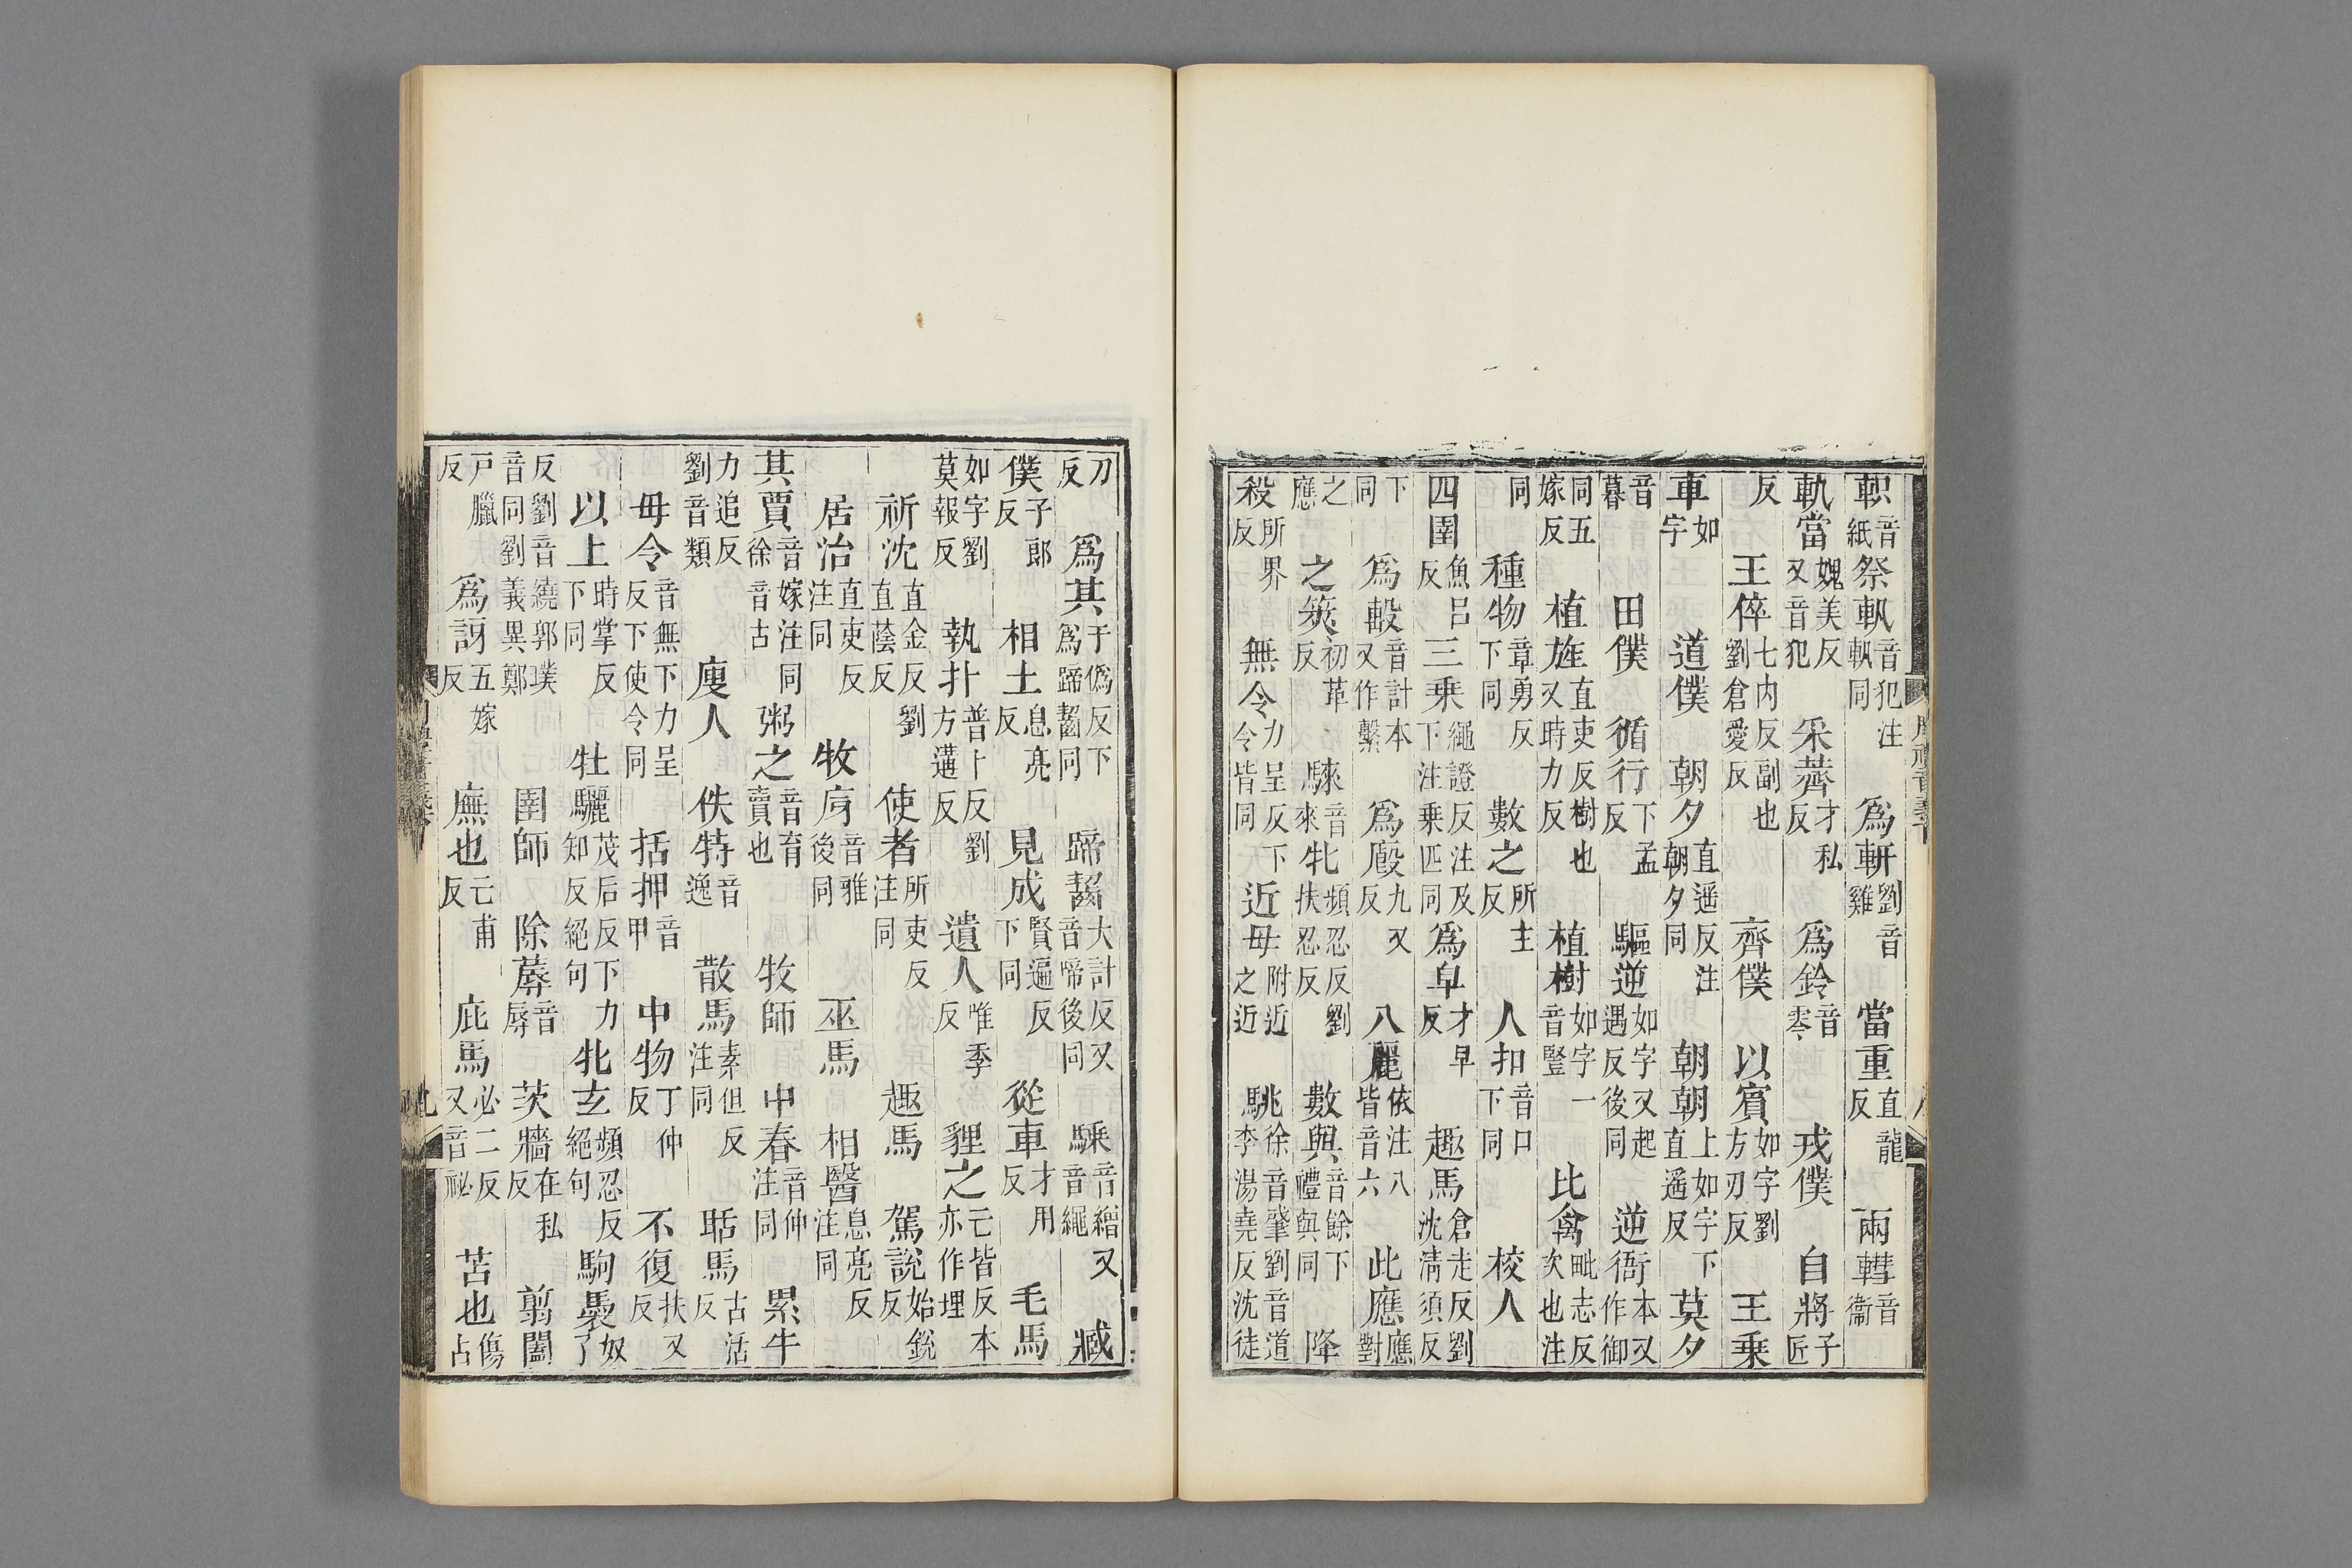 軹音紙祭軓音犯注軓同 爲斬劉音雞 當重直龍反 兩轊音衞
軌當媿美反又音犯 采薺才私反 爲鈴音零 戎僕 自將子匠
反 王倅七内反副也劉倉愛反 齊僕 以賓如字劉方刃反 王乗
車如字 道僕 朝夕直遥反注朝夕同 朝朝上如字下直遥反 莫夕
音暮 田僕 循行下孟反 驅逆如字又起遇反後同 逆衙本又作御
同五嫁反 植旌直吏反樹也又時力反 植樹如字一音豎 比禽毗志反次也注
同 種物章勇反下同 數之所主反 人扣音口下同 校人
四圉魚吕反 三乗繩證反注及下注乗匹同 爲皁才早反 趣馬倉走反劉清須反沈
下同 爲轂音計本又作繫 爲廄九又反 八麗依注八皆音六 此應應對
之應 之筴初革反 騋音來牝頻忍反劉扶忍反 數與音餘下禮與同 降
殺所界反 無令力呈反下令皆同 近母附近之近 駣徐音肇劉音道李湯堯反沈徒
刀反 爲其于僞反下爲蹄齧同 蹄齧大計反又音啼後同 騬音繒又音繩 臧
僕子郎反 相土息亮反 見成賢遍反下同 從車才用反 毛馬
如字劉莫報反 執扑普卜反劉方遘反 遺人唯季反 貍之亡皆反本亦作埋
祈沈直金反劉直蔭反 使者所吏反注同 趣馬 駕說始銳反
居治直吏反注同 牧庌音雅後同 巫馬 相醫息亮反注同
其賈音嫁注同徐音古 粥之音育賣也 牧師 中春音仲注同 累牛
力追反劉音類 廋人 佚特音逸 散馬素但反注同 聒馬古活反
毋令音無下力呈反下使令同 括押音甲 中物丁仲反 不復扶又反
以上時掌反下同 牡驪茂后反下力知反絕句 牝玄頻忍反絕句 駒褭奴了
反劉音繞郭璞音同劉義異鄭 圉師 除蓐音辱 茨牆在私反 翦闔
戸臘反 爲訝五嫁反 廡也亡甫反 庇馬必二反又音祕 苫也傷占